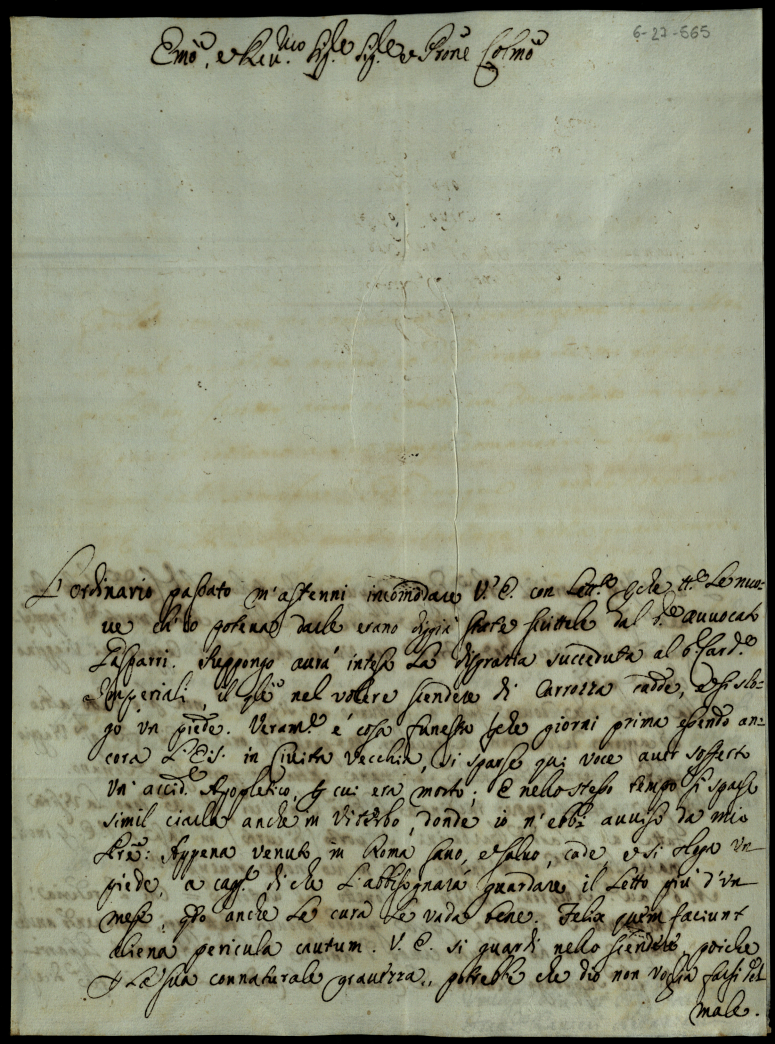 6-27-665
Emo, e Rev.mo Sig.e Sig.e e Prone Colmo
L'ordinario passato m'astenni incommodare V. E. con Lett.e pche tt.e Le nuo=
ue ch'io poteua darle erano diggià state scrittele dal S.e Auuocato
Gasparri. Suppongo aurà inteso La disgratia succeduta al S.e Card.e
Imperiali, il q.le nel volere scendere di Carrozza cadde, e si slo=
gò un piede. Veram.e è cosa funesta pche giorni prima essendo an=
cora in Ciuita Vecchia, si sparse qui voce auer sofferto
un accid.e Apopletico, p cui era morto; E nello stesso tempo si sparse
simil ciarla anche in Viterbo, donde io n'ebbi auuiso da mio
Appena venuto in Roma sano, e saluo, cade, e si sloga un
piede, a cag.e di che L'abbisognarà guardare il Letto più d'un
mese, qdo anche Le cura Le vada bene. Felix quem faciunt
aliena pericula cautum. V. E. si guardi nello scendere, poiche
p La sua connaturale grauezza, potrebbe che dio non voglia farsi del
male.